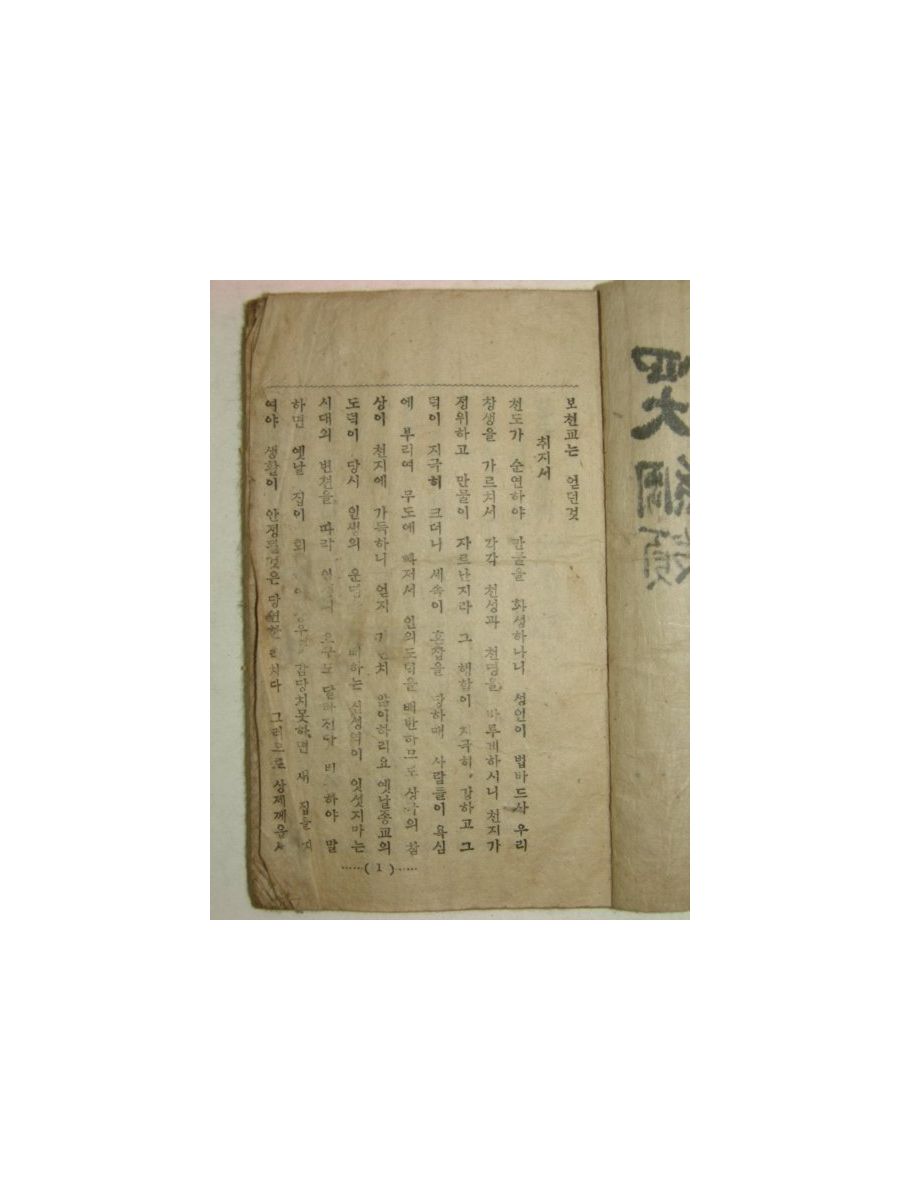 四大綱領
보천교는 얻던것
취지서
천도가 순연하야 만물을 화생하나니 성인이 법바드사 우리
창생을 가르치서 각각 천성과 천명을 바루게하시니 천지가
정위하고 만물이 자르난지라 그 행함이 지극히 강하고 그
덕이 지극히 크더니 세속이 혼잡을 당하매 사람들이 욕심
에 부리여 무도에 빠저서 인의도덕을 배반하므로 상극의 참
상이 천지에 가득하니 얻지 치 않이하리요 옛날종교의
도덕이 당시 인생의 운 하는 신성력이 잇섯지마는
시대의 변천을 따라 요구도 달라 하야 말
하면 옛날 집이 회 감당치못하면 새 집을
여야 생활이 안정될것은 당연한 리치다 그러므로 상제께옵
(1)